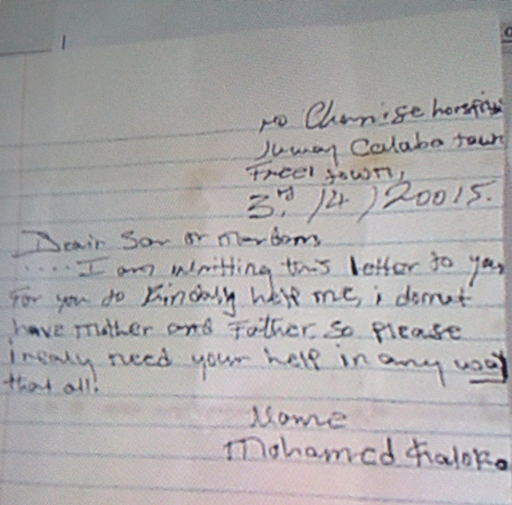 no Chanise hospital
Jumay Calaba town
Freel town,
3rd /4 / 20015.
Deair Sar or Mardam
.....I am writting this letter to you
for you do Kindaly help me, i donut
have mother and Father. So please
i realy need your help in any way
that all!
Name
Mohamed Kaloko